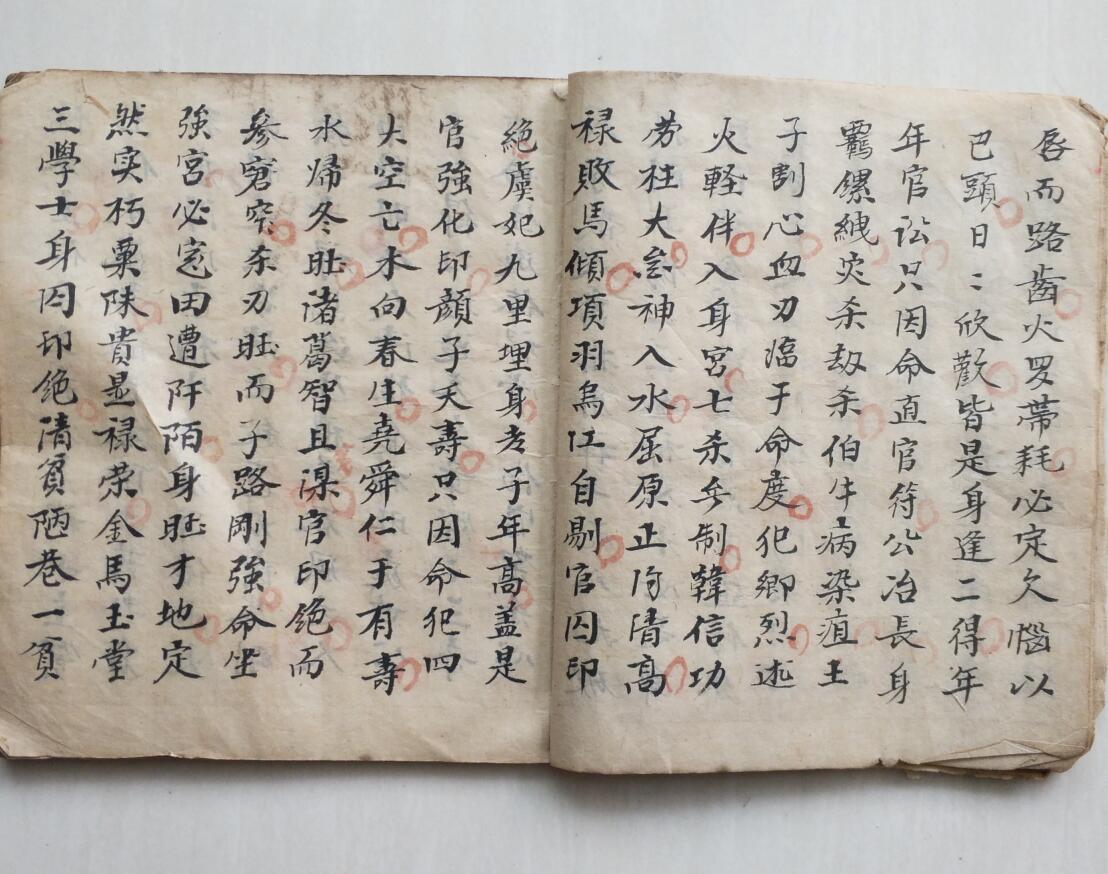 唇而路齒火罗蒂耗必定欠惱以
巳頭日：欣歡皆是身逢二得年
年官訟只因命直官符公冶長身
羈縲絏灾杀劫杀伯牛病染疽主
子割心血刃临于命度犯鄉烈述
火軽伴入身宮七杀兵制韓信功
劳柱大忌神入水屈原正陷清高
禄敗馬傾項羽烏江自剔官囚印
絕虞妃九里埋身老子年高盖是
官強化印顔子夭壽只因命犯四
大空亡木向春生堯舜仁于有壽
水歸冬旺諸葛智且深官印絕而
參窮窄杀刃旺而子路剛強命坐
強宮必定田遭阡陌身旺才地定
然实朽粟陳貴显禄荣金馬玉堂
三學士身囚印绝清貧陋巷一貧